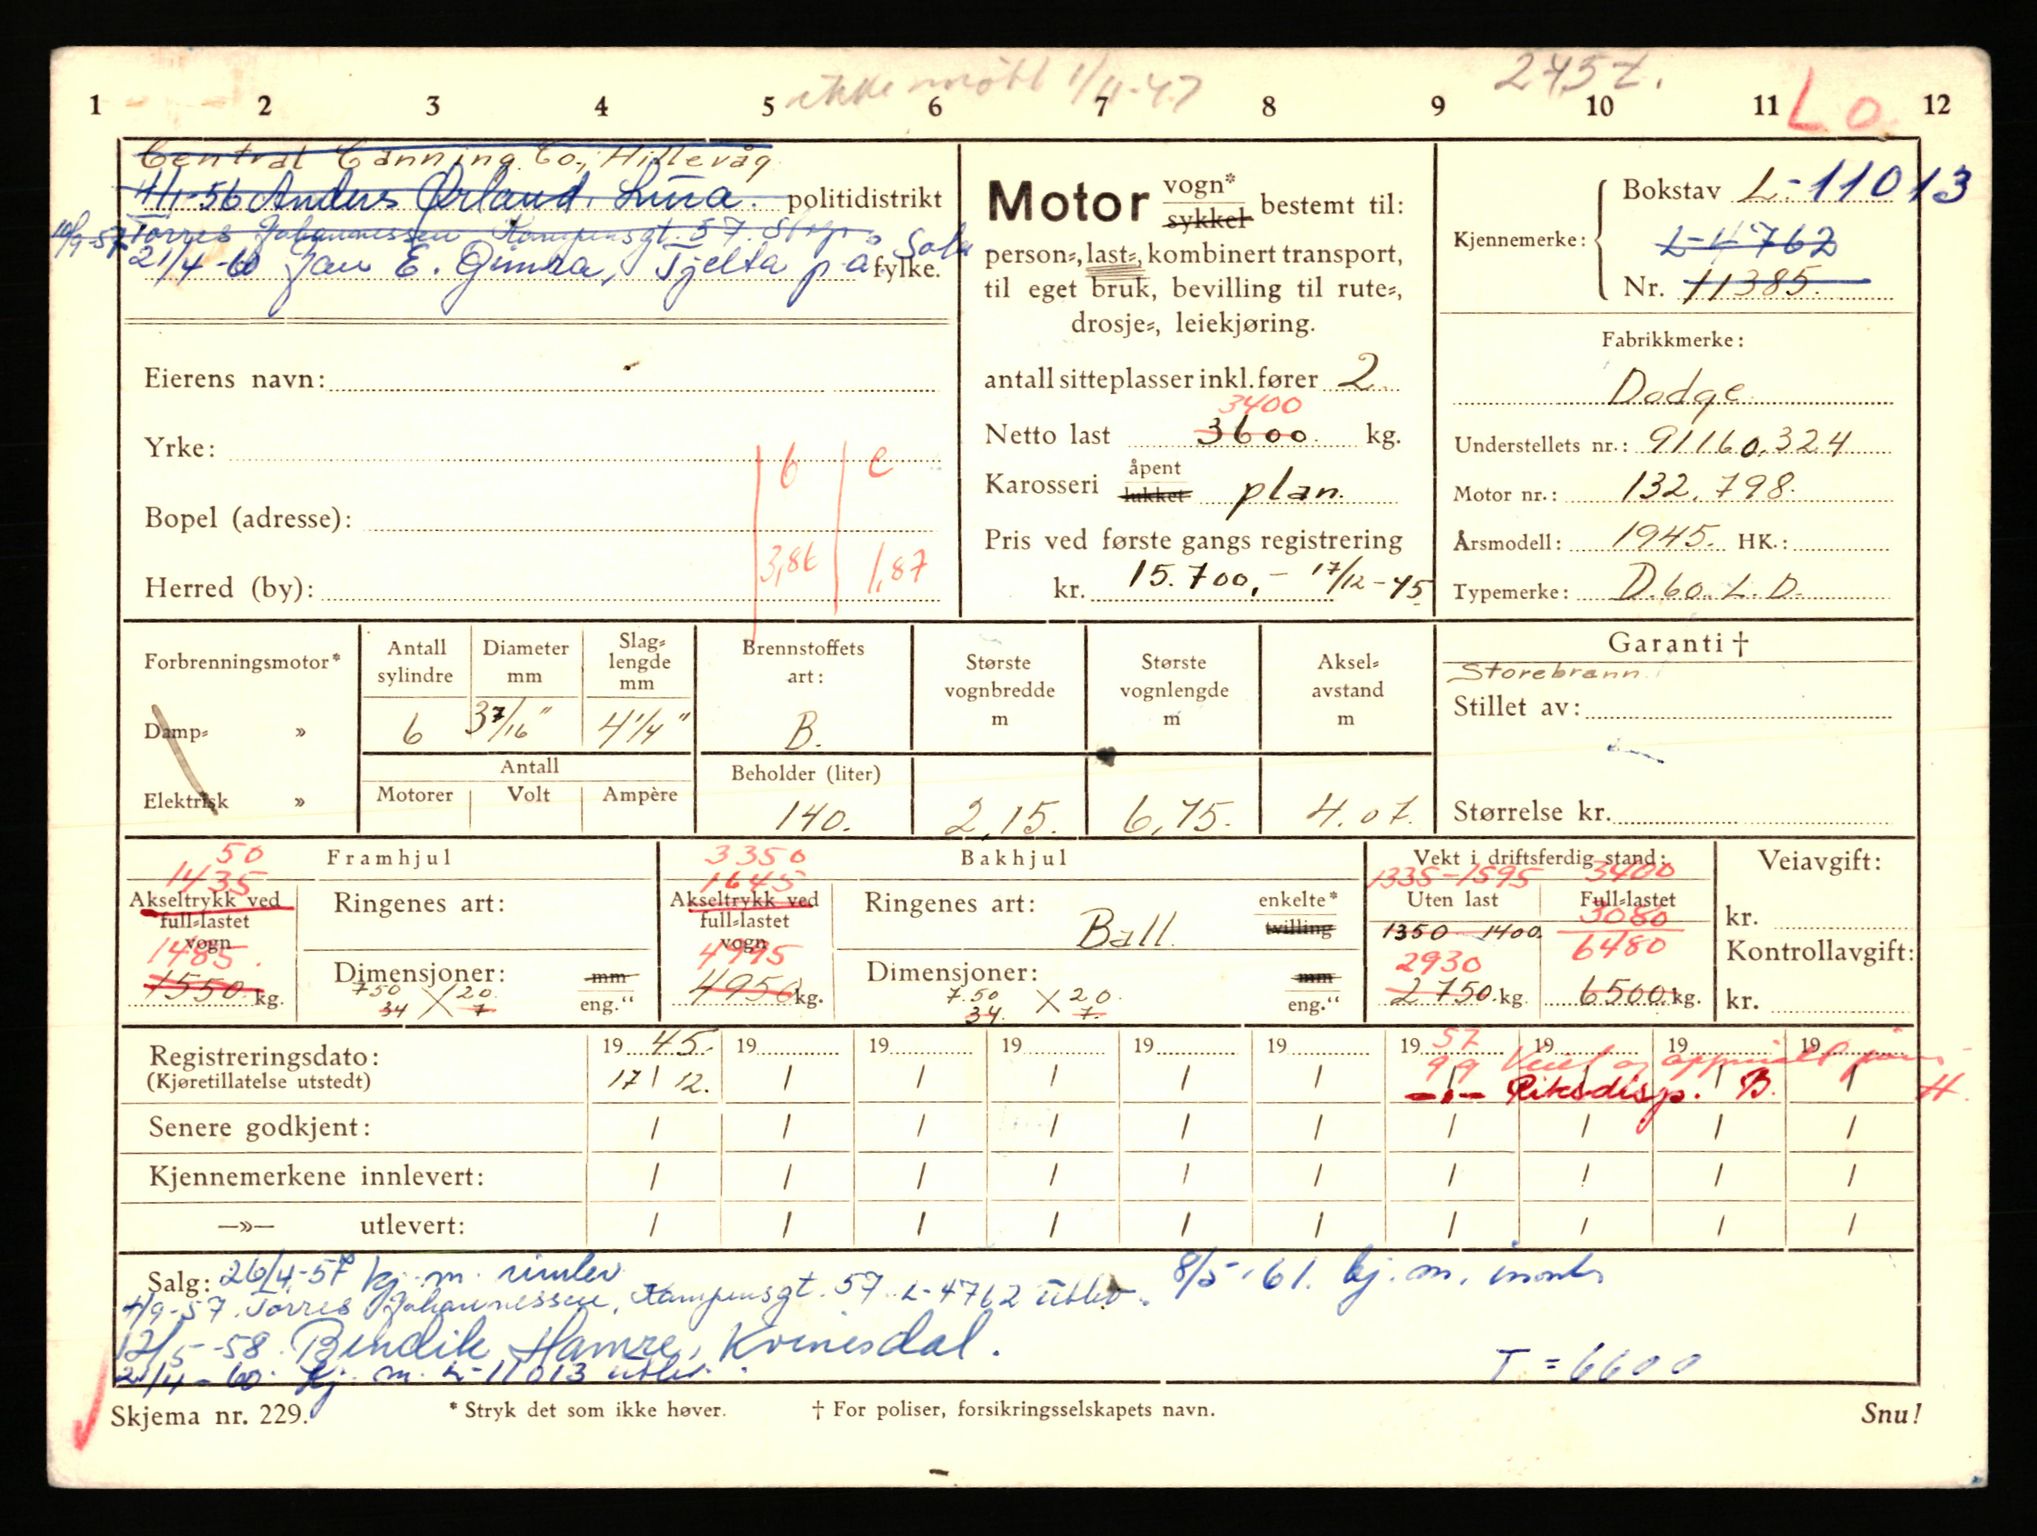 ikke møtt 1/4-47
2757.
1 2 3 4 5 6 7 8 9 10 11 12
L o
Central Canning Co., Hillevåg
4/1-56 Anders Ørland, Lura. politidistrikt
10/9-57 Torres Johannessen Kampensgt. 57.
21/4-60 Jan E. Gimra, Tjelta p.å. Sola fylke.
Eierens navn:
Yrke:
Bopel (adresse):
Herred (by):
b c
3,86 1,87
Motor vogn* sykkel bestemt til:
person-, last-, kombinert transport,
til eget bruk, bevilling til rute-,
drosje-, leiekjøring.
antall sitteplasser inkl. fører 2
3400
Netto last 3600 kg.
Karosseri åpent lukket plan.
Pris ved første gangs registrering
kr. 15.700,- 17/12-45
Kjennemerke: Bokstav L-11013
L-4762
Nr. 11385
Fabrikkmerke:
Dodge
Understellets nr.: 91160.324
Motor nr.: 132.798.
Årsmodell: 1945. HK.:
Typemerke: D.60.L.D.
Forbrenningsmotor*
Damp- »
Elektrisk »
Antall sylindre
6
Diameter mm
3 7/16"
Slag-lengde mm
4 1/4"
Antall
Motorer Volt Ampère
Brennstoffets art:
B.
Beholder (liter)
140.
Største vognbredde m
2,15.
Største vognlengde m
6,75.
Aksel-avstand m
4.07.
Garanti †
Storebrann.
Stillet av:
Størrelse kr.
Framhjul
50
1435
Akseltrykk ved full-lastet vogn
1485.
1550 kg.
Ringenes art:
Dimensjoner: mm
7.50 X 20. eng."
34 7
Bakhjul
3350
1645
Akseltrykk ved full-lastet vogn
4995
4950 kg.
Ringenes art: Ball. enkelte* tvilling
Dimensjoner: mm
7.50 X 20. eng."
34. 7.
Vekt i driftsferdig stand:
1335-1595 3400
Uten last Full-lastet
3080
1350 1400.
6480
2930
2750 kg. 6500 kg.
Veiavgift:
kr.
Kontrollavgift:
kr.
Registreringsdato: 19 45. 19 19 19 19 19 19 57 19 19 19
(Kjøretillatelse utstedt) 17 / 12. 9/9 Veiet og
-"- Riksdisp. B. H.
Senere godkjent:
Kjennemerkene innlevert:
—»— utlevert:
Salg: 26/4-57 kj. m. innlev
4/9-57. Torres Johannessen, Kampensgt. 57. L-4762 utlev.
8/5-61. kj. m. innlev
12/5-58. Bendik Hamre, Kvinesdal.
21/4-60. kj. m. L-11013 utlev.
T = 6600
Skjema nr. 229.
* Stryk det som ikke høver.
† For poliser, forsikringsselskapets navn.
Snu!